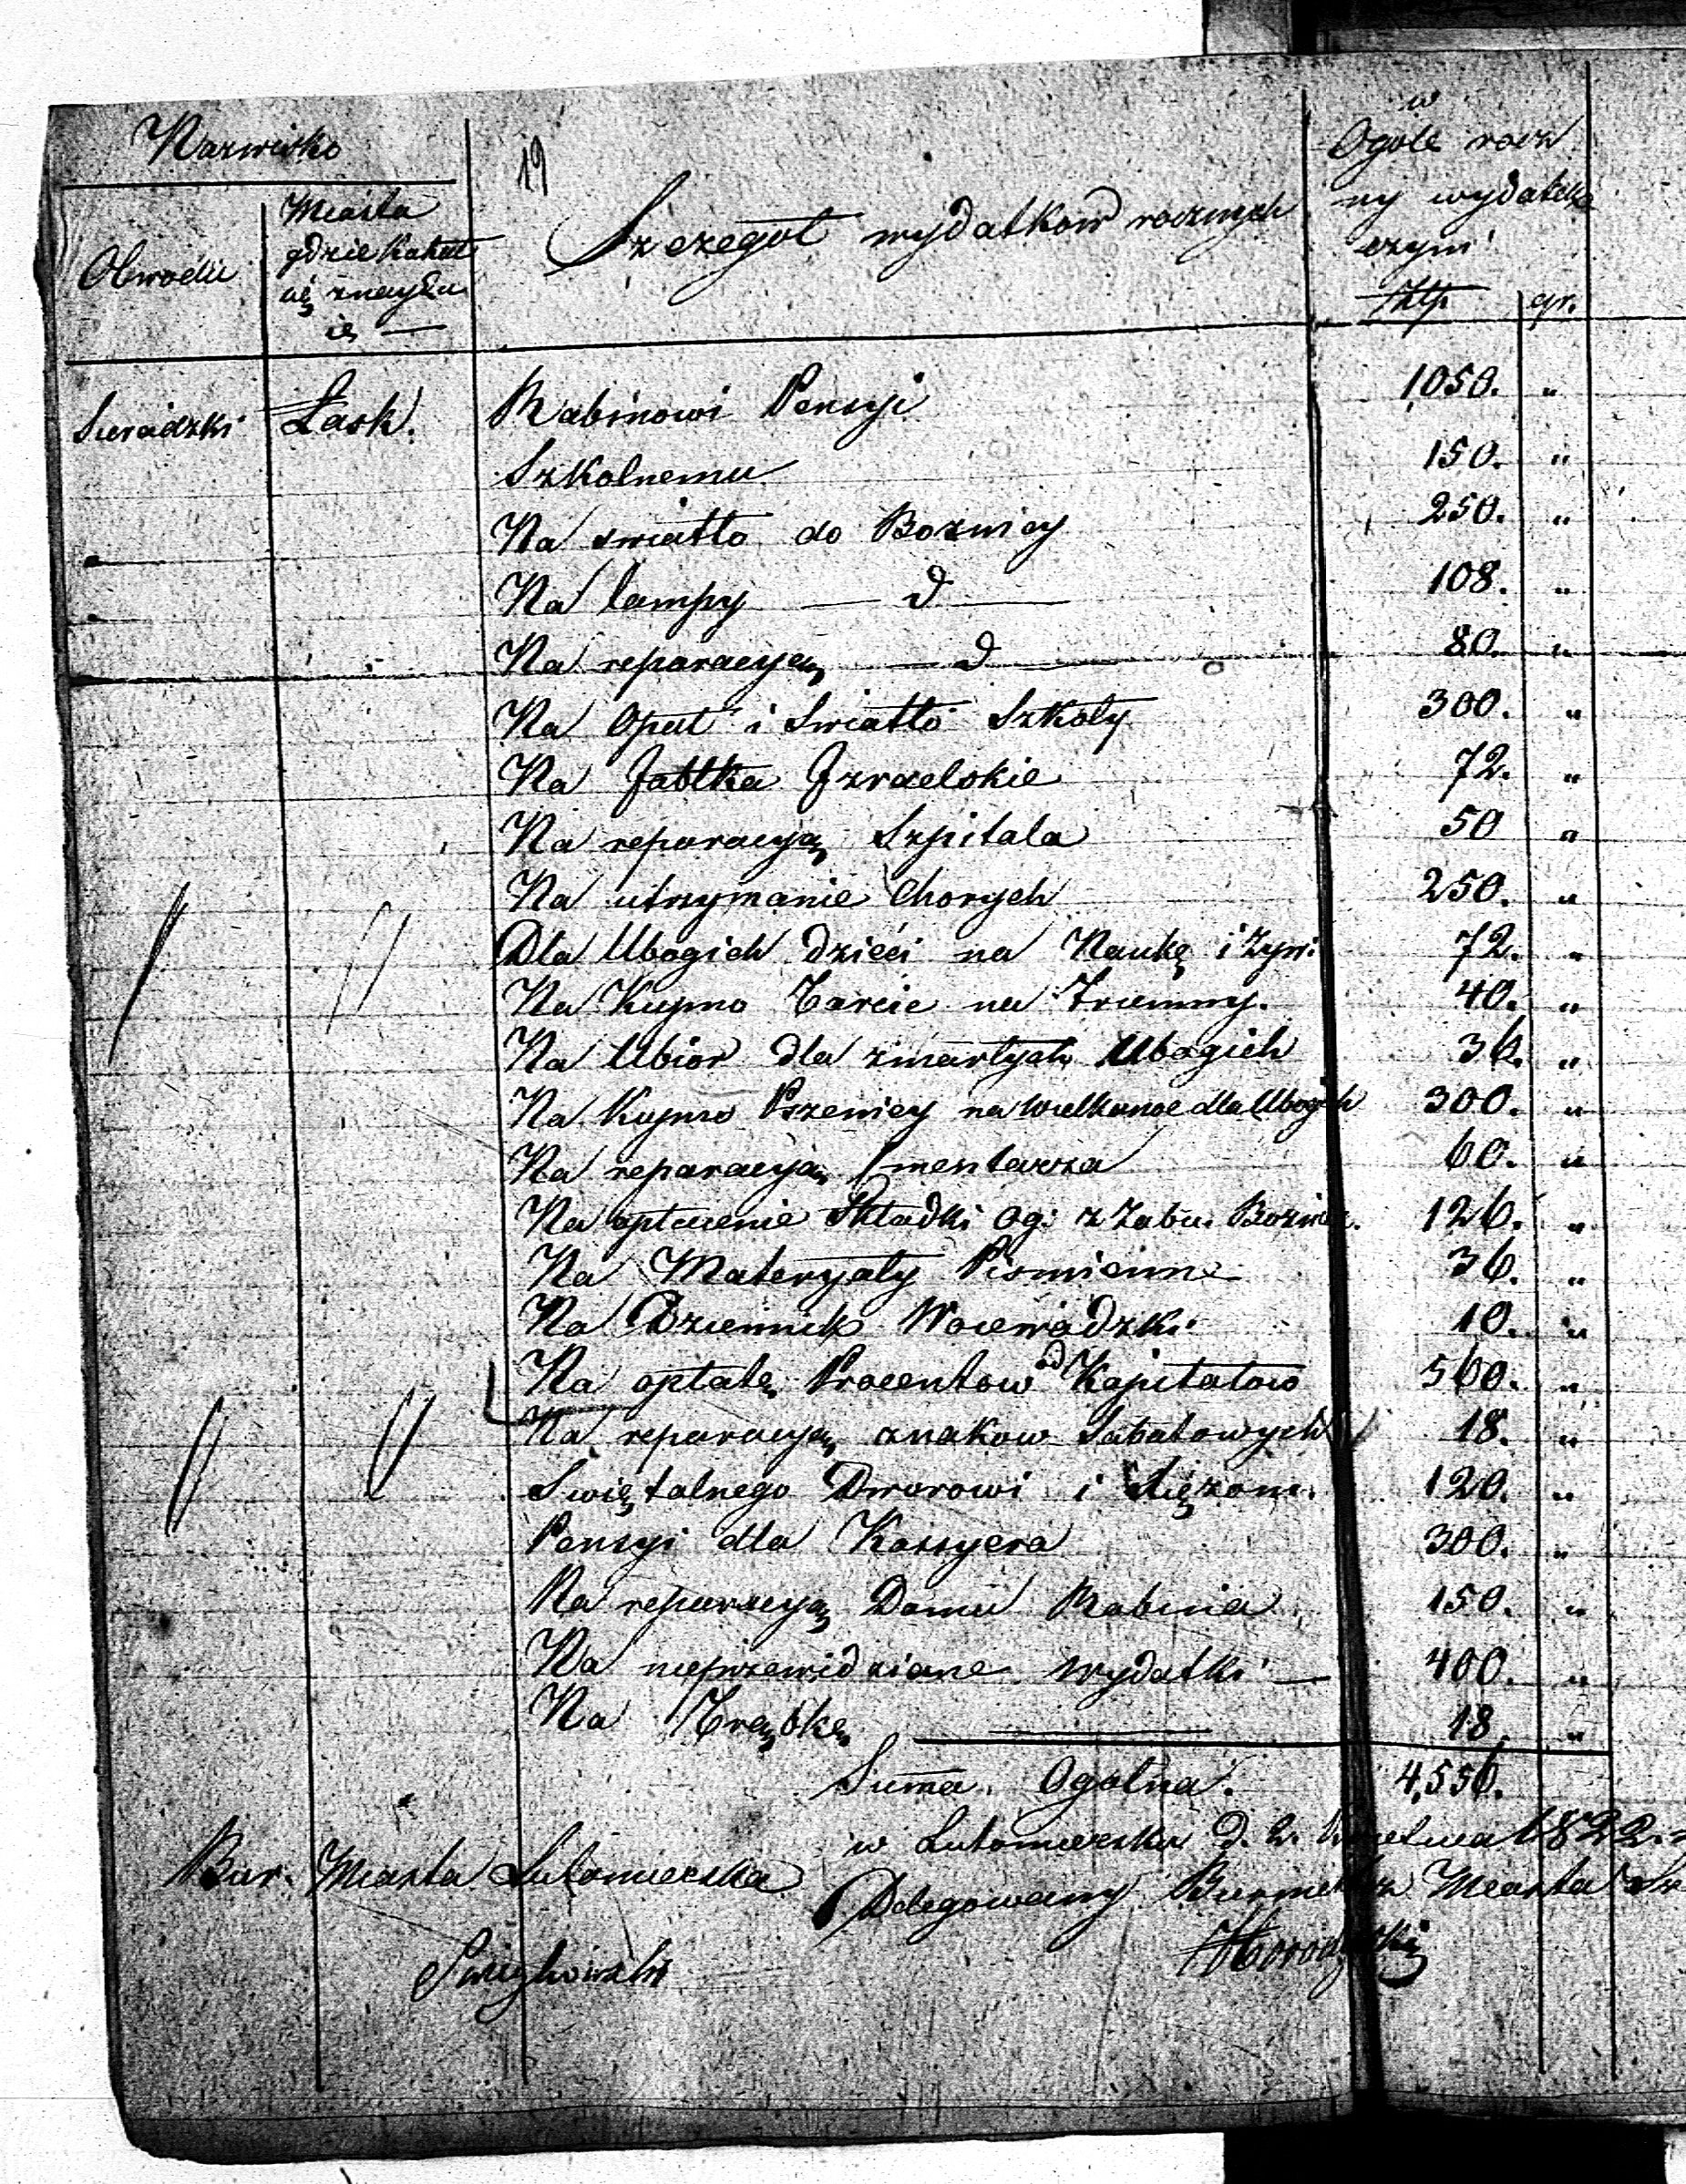 Nazwisko
Obwodu
Miasta
gdzie Kahał
się znaydu
ie —
19
Szczegoł wydatkow rocznych
w
Ogole rocz
ny wydatek
czyni
Złp gr.
Sieradzki Łask. Rabinowi Pensyi 1050. "
Szkolnemu 150. "
Na swiatło do Boznicy 250. "
Na lampy — d — 108. "
Na reparacyą — d — 80. "
Na Opał i Swiatło Szkoły 300. "
Na Jabłka Izraelskie 72. "
Na reparacyą Szpitala 50 "
Na utrzymanie Chorych 250. "
Dla Ubogich dzieci na Naukę i żyw: 72. "
Na Kupno Tarcic na Trumny. 40. "
Na Ubior dla zmarłych Ubogich 36. "
Na Kupno Pszenicy na Wielkanoc dla Ubogich 300. "
Na reparacyą Smentarza 60. "
Na opłacenie Składki Og: z Zabu: Boznicz. 126. "
Na Materyały Pismienne 36. "
Na Dziennik Woiewodzki 10. "
Na opłatę Procentow od Kapitałow 560. "
Na reparacyą znakow Sabatowych 18. "
Swiętalnego Dworowi i Xiężom. 120. "
Pensyi dla Kassyera 300. "
Na reparacyą Domu Rabina 150. "
Na nieprzewidziane wydatki — 400. "
Na Trąbkę 18 "
Suma Ogolna. 4,556.
w Lutomiersku d. 2. Kwietnia 1822.
Bur. Miasta Lutomierska
Delegowany Burmistrz Miasta